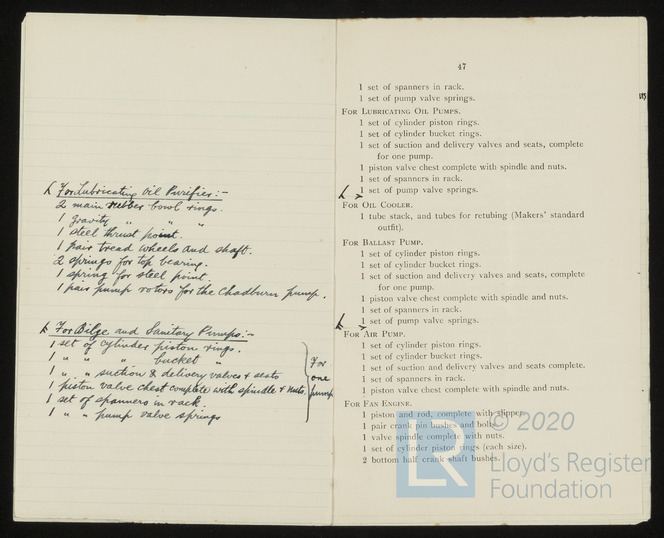 L For Lubricating Oil Purifier:-
2 main rubber bowl rings.
1 gravity " " "
1 steel thrust point.
1 pair tread wheels and shaft.
2 springs for top bearing.
1 spring for steel point.
1 pair pump rotors for the Chadburn pump.
k For Bilge and Sanitary Pumps:-
1 set of cylinder piston rings.
1 " " " bucket "
1 " " suction & delivery valves & seats
1 piston valve chest complete with spindle & nuts.
1 set of spanners in rack.
1 " " pump valve springs
For
one
pump
47
1 set of spanners in rack.
1 set of pump valve springs.
For Lubricating Oil Pumps.
1 set of cylinder piston rings.
1 set of cylinder bucket rings.
1 set of suction and delivery valves and seats, complete
for one pump.
1 piston valve chest complete with spindle and nuts.
1 set of spanners in rack.
L > 1 set of pump valve springs.
For Oil Cooler.
1 tube stack, and tubes for retubing (Makers' standard
outfit).
For Ballast Pump.
1 set of cylinder piston rings.
1 set of cylinder bucket rings.
1 set of suction and delivery valves and seats, complete
for one pump.
1 piston valve chest complete with spindle and nuts.
1 set of spanners in rack.
k > 1 set of pump valve springs.
For Air Pump.
1 set of cylinder piston rings.
1 set of cylinder bucket rings.
1 set of suction and delivery valves and seats complete.
1 set of spanners in rack.
1 piston valve chest complete with spindle and nuts.
For Fan Engine.
1 piston and rod, complete with slipper.
1 pair crank pin bushes and bolts.
1 valve spindle complete with nuts.
1 set of cylinder piston rings (each size).
2 bottom half crank shaft bushes.
LR
© 2020
Lloyd's Register
Foundation